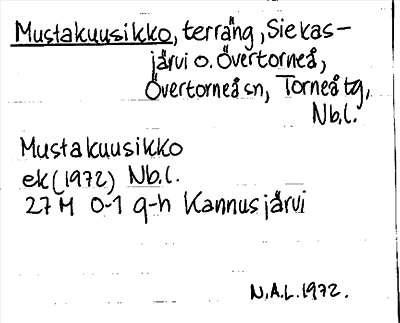 Mustakuusikko, terräng, Siekas-
järvi o. Övertorneå,
Övertorneå sn, Torneå tg,
Nb.l.
Mustakuusikko
ek (1972) Nb.l.
27 M 0-1 g-h Kannusjärvi
N.A.L. 1972.